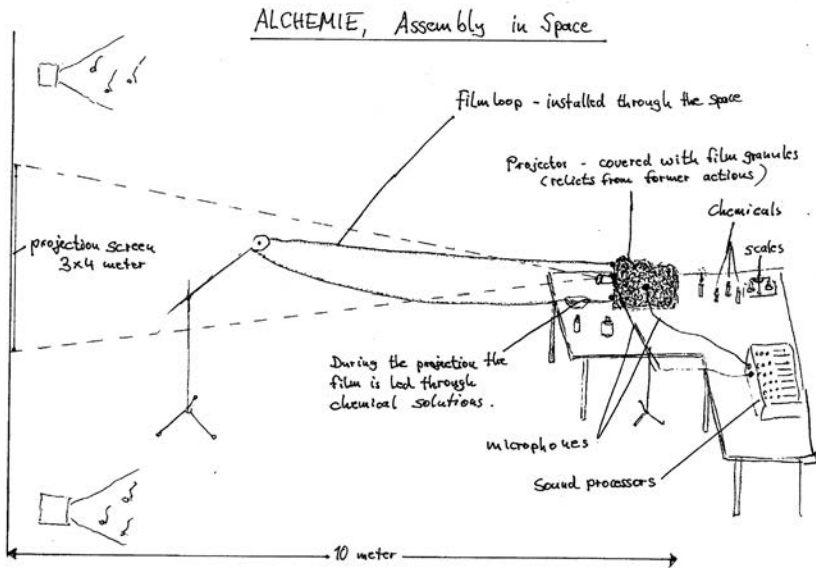 ALCHEMIE, Assembly in Space
film loop - installed through the space
Projector - covered with film granules
(relicts from former actions)
Chemicals
scales
projection screen
3x4 meter
During the projection the
film is led through
chemical solutions.
microphones
Sound processors
10 meter